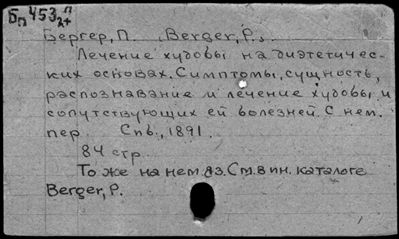 Бп 453 п/2+
Бергер, П. Berger, P.
Лечение худобы на диэтетичес-
ких основах. Симптомы, сущность,
распознавание и лечение худобы и
сопутствующих ей болезней. С нем.
пер. Спб., 1891.
84 стр.
То же на нем. яз. См. в ин. каталоге
Berger, P.